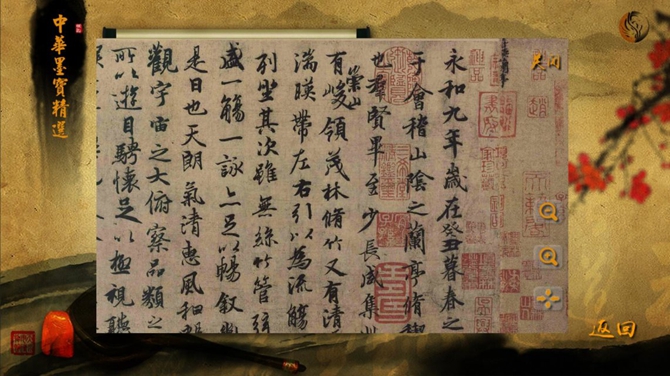 中華墨寶精選
永和九年歲在癸丑暮春之
于會稽山陰之蘭亭脩禊
也羣賢畢至少長咸集
有崇山峻領茂林脩竹又有清
湍暎帶左右引以為流觴
列坐其次雖無絲竹管弦
盛一觴一詠亦足以暢叙幽
是日也天朗氣清惠風和
觀宇宙之大俯察品類之
所以遊目騁懷足以極視聽
返回